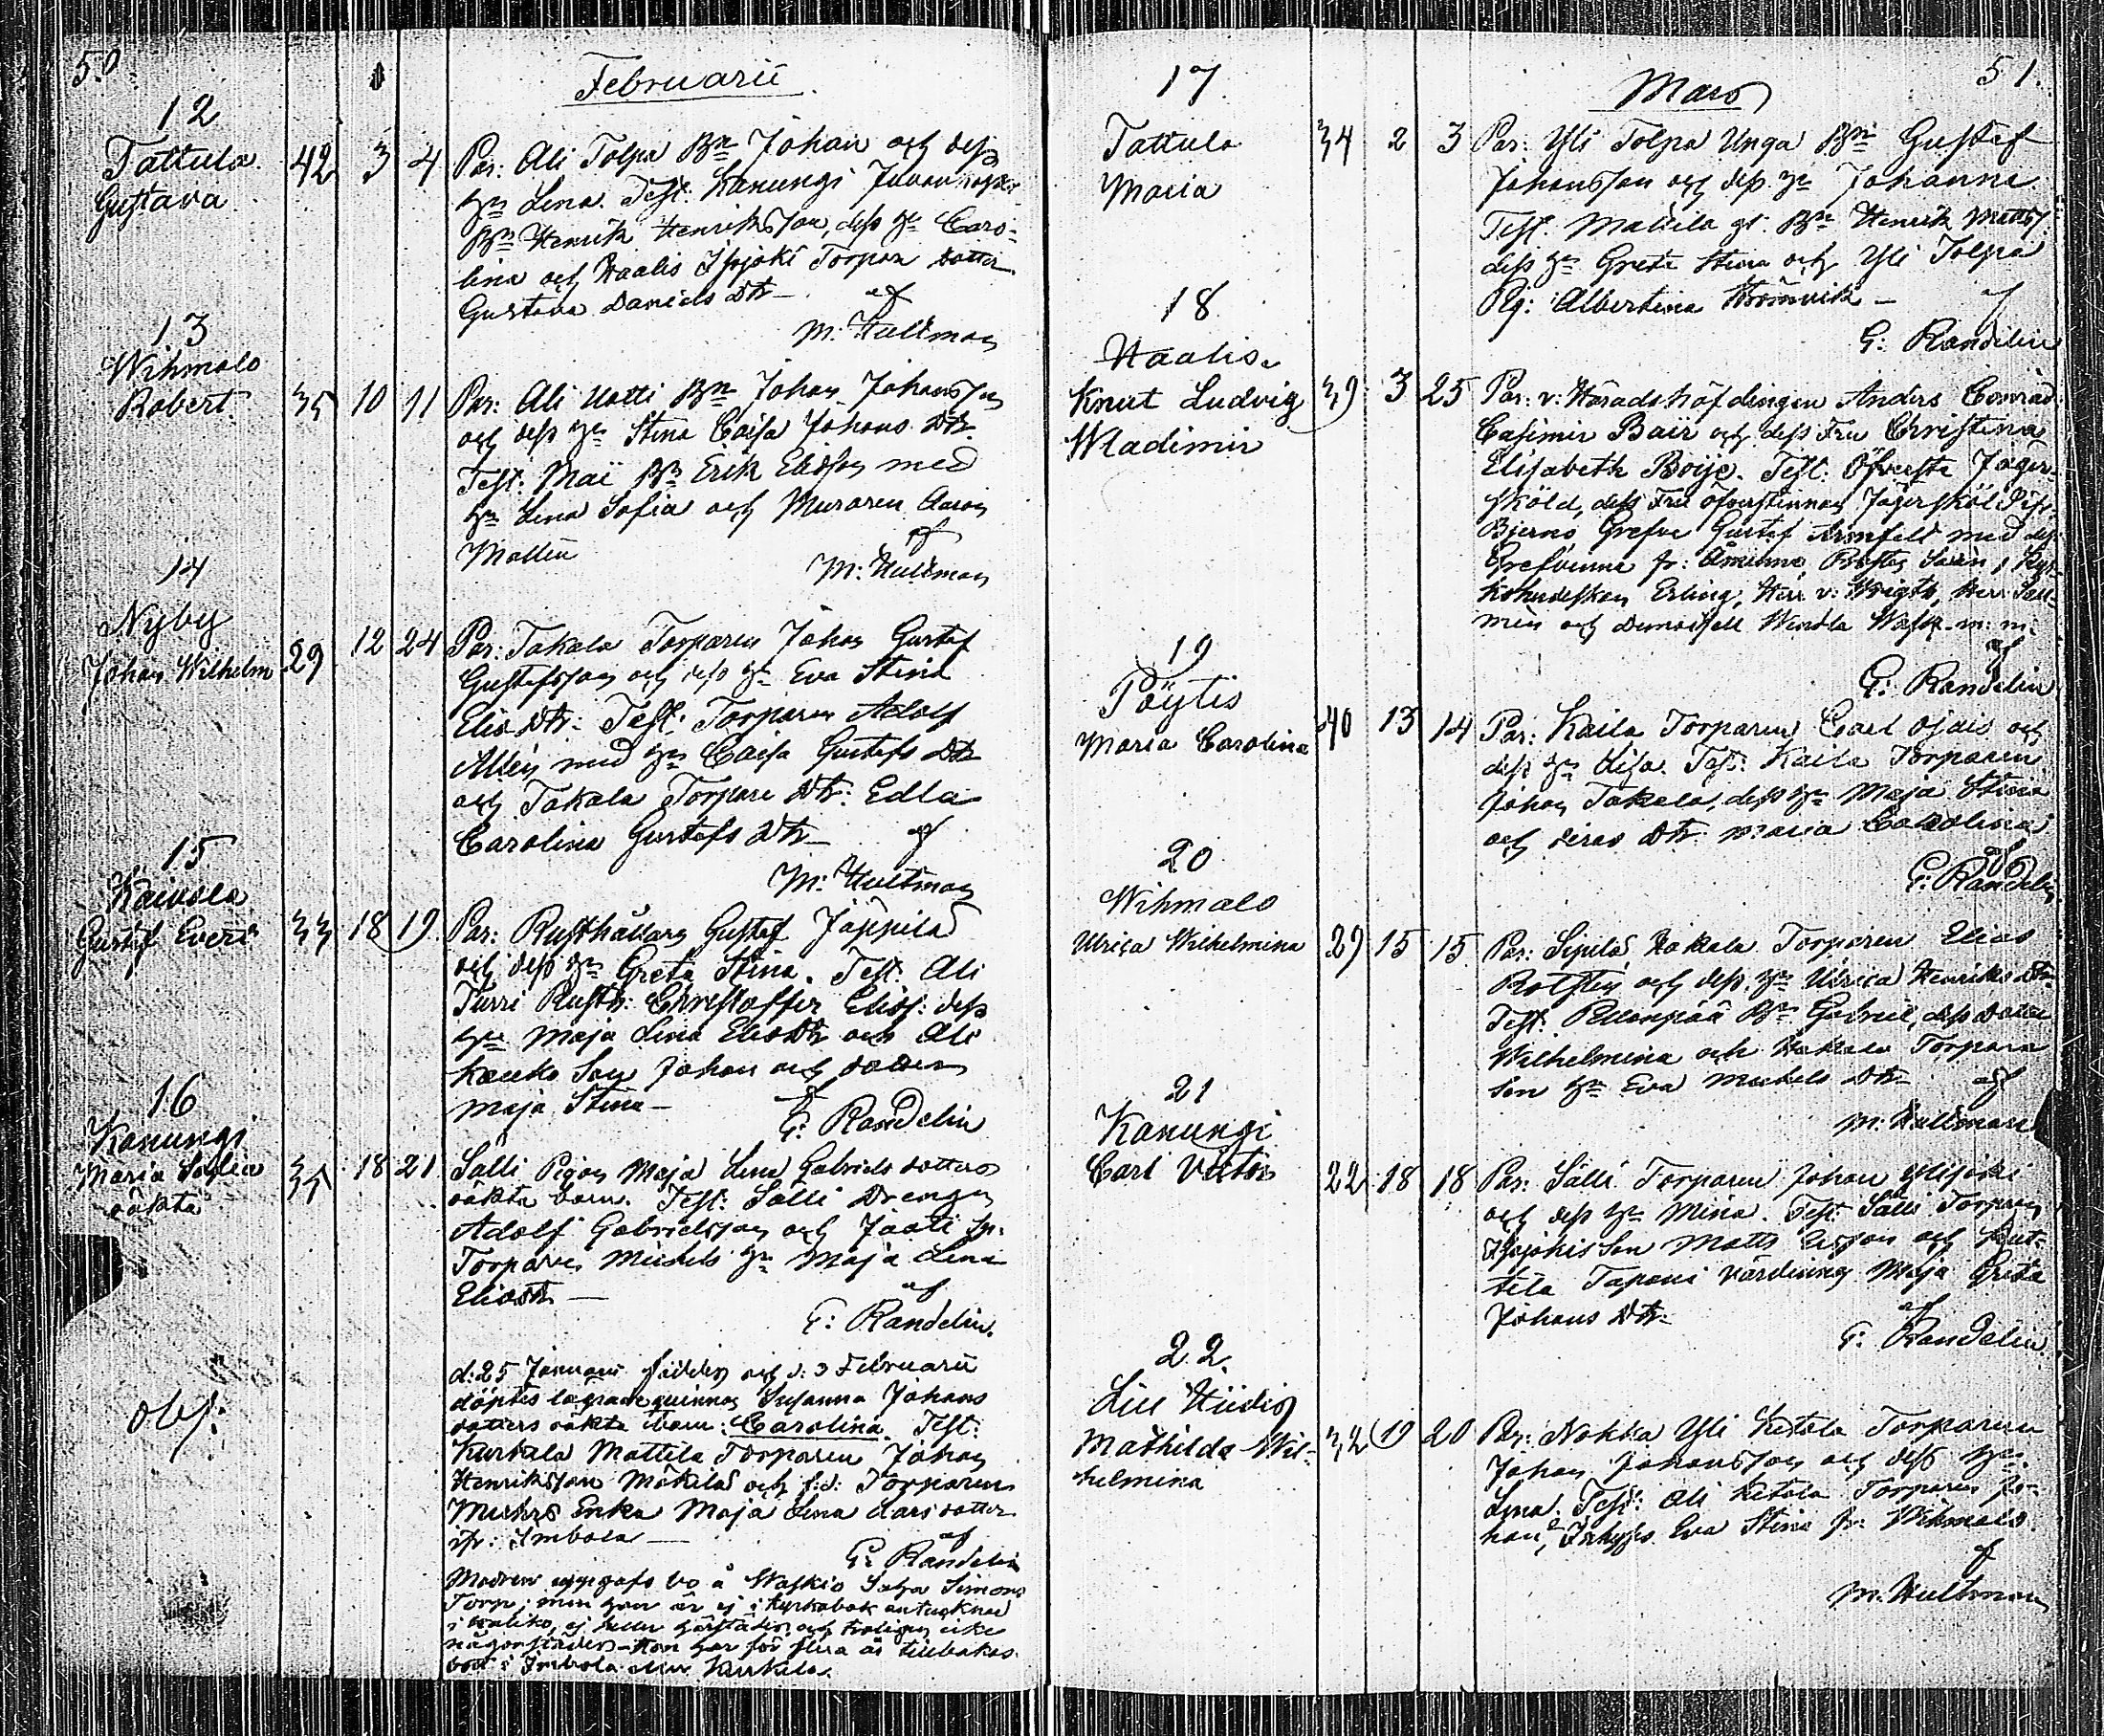 50
Februarii
12
Tattula
Gustava
42 3 4
Par: Ali Tolpa Bn Johan och dess
hu Lena. Test. Kanungi
Bn Henrik Henriksson, dess hu Caro-
lina och Haalis Isojoki Torpar dotter
Gustava Daniels Dtr — af
M: Hultman
13
Wihmalo
Robert
35 10 11
Par: Ali Uotti Bn Johan Johansson
och dess hu Stina Caisa Johans Dtr.
Test: Mai Bn Erik Eliasson med
hu Lena Sofia och Muraren
Mallen af
M: Hultman
14
Nyby
Johan Wilhelm
29 12 24
Par: Takala Torparen Johan Gustaf
Gustafsson och dess hu Eva Stina
Elias Dtr: Test: Torparen Adolf
med hu Caisa Gustafs Dtr
och Takala Torpare Dtr: Edla
Carolina Gustafs Dtr — af
M: Hultman
15
Kaivola
Gustaf Evert
33 18 19
Par: Rusthållaren Gustaf Jäppilä
och dess hu Greta Stina. Test. Ali
Turri Rusth: Christoffer Elias: dess
hu Maja Lina Elias Dtr och Ali
Kouko Son Johan och dottren
Maja Stina — af
G: Randelin
16
Kanungi
Maria Sofia
oäkta
35 18 21
Salli Pigan Maja Lena Gabriels dotters
oäkta barn. Test: Salli Drengen
Adolf Gabrielsson och Jaati
Torparen Michels hu Maja Lena
Elias Dtr — af
G: Randelin.
obs:
d: 25 Januarii födden och d: 3 Februarii
döptes lägrade quinnan Susanna Johans
dotters oäkta barn: Carolina. Test:
Kurkela Mattila Torparen Johan
Henriksson Mäkilä och f.d. Torparen
Michels Enka Maja Lena Lars dotter
ifr: Imbola — af
G: Randelin
Modren uppgafs bo å Waskio Simons
Torp; men hon är ej i kyrkobok antecknad
i Haliko, ej heller härstädes och troligen icke
någonstädes — Hon har för flera år tillbakas
bott i Imbola eller Kurkela.
51.
Mars
17
Tattula
Maria
34 2 3
Par: Yli Tolpa Unga Bn Gustaf
Johansson och dess hu Johanna
Test. Mattila gl. Bn Henrik Matts:
dess hu Greta Stina och Yli Tolpa
Pig: Albertina Strömvik — af
G: Randelin
18
Haalis
Knut Ludvig
Wladimir
39 3 25
Par: v: Häradshöfdingen Anders Conrad
Casimir Bair och dess Fru Christina
Elisabeth Boije. Test: Öfverste Jäger-
sköld, dess Fru Öfverstinnan Jägersköld ifr.
Bjerno Grefve Gustaf Armfelt med dess
Grefvinna fr: Åminne, Prosten
Erling, Herr v: Wright, Herr
och Demoisell Wendla m: m:
af
G: Randelin
19
Pöytis
Maria Carolina
40 13 14
Par: Kaila Torparen Carl Ojais och
dess hu Lisa. Test: Kaila Torparen
Johan Takala, dess hu Maja Stina
och deras Dtr. Maria Carolina
af
G: Randelin
20
Wihmalo
Ulrica Wilhelmina
29 15 15
Par: Sipilä Hakala Torparen Elias
Rotsten och dess hu Ulrica Henriks Dtr
Test. Pellonpää Bn Gabriel, dess dotter
Wilhelmina och Hakala Torpare
son hu Eva Michels Dtr — af
M: Hultman
21
Kanungi
Carl Victor
22 18 18
Par: Salli Torparen Johan Ylijoki
och dess hu Mina. Test: Salli Torparen
Isojokis Son Matts och
Tapani värdinnan Maja Greta
Johans Dtr. af
G: Randelin.
22.
Lill Hiidis
Mathilda Wil-
helmina
32 19 20
Par: Nokka Yli Ketola Torparen
Johan Johansson och dess hu
Lena. Test: Ali Ketola Torparen Jo-
han, Inhyses Eva Stina fr: Wihmalo.
af
M: Hultman